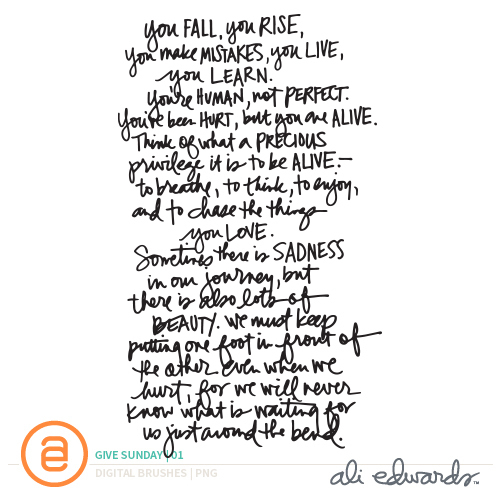 you FALL, you RISE,
you make MISTAKES, you LIVE,
you LEARN.
you're HUMAN, not PERFECT.
You've been HURT, but you are ALIVE.
Think of what a PRECIOUS
privilege it is to be ALIVE —
to breathe, to think, to enjoy,
and to chase the things
you LOVE.
Sometimes there is SADNESS
in our journey, but
there is also lots of
BEAUTY. we must keep
putting one foot in front of
the other even when we
hurt, for we will never
know what is waiting for
us just around the bend.
ae
GIVE SUNDAY | 01
DIGITAL BRUSHES | PNG
ali edwards™